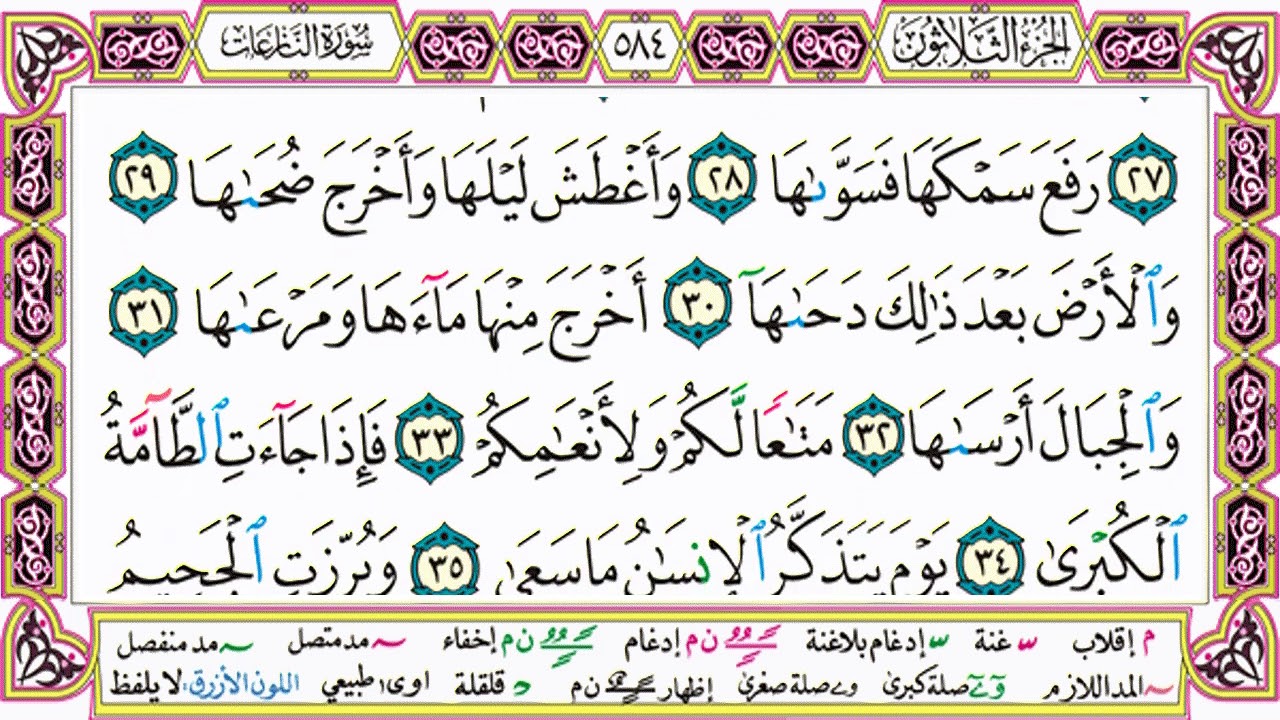 الجزء الثلاثون ٥٨٤ سورة النازعات
٢٧ رَفَعَ سَمْكَهَا فَسَوَّىٰهَا ٢٨ وَأَغْطَشَ لَيْلَهَا وَأَخْرَجَ ضُحَىٰهَا ٢٩
وَٱلْأَرْضَ بَعْدَ ذَٰلِكَ دَحَىٰهَآ ٣٠ أَخْرَجَ مِنْهَا مَآءَهَا وَمَرْعَىٰهَا ٣١
وَٱلْجِبَالَ أَرْسَىٰهَا ٣٢ مَتَـٰعًا لَّكُمْ وَلِأَنْعَـٰمِكُمْ ٣٣ فَإِذَا جَآءَتِ ٱلطَّآمَّةُ
ٱلْكُبْرَىٰ ٣٤ يَوْمَ يَتَذَكَّرُ ٱلْإِنسَـٰنُ مَا سَعَىٰ ٣٥ وَبُرِّزَتِ ٱلْجَحِيمُ
م إقلاب ّ غنة ّ إدغام بلاغنة ن م إدغام ن م إخفاء ~ مد متصل ~ مد منفصل
~ المد اللازم و ے صلة كبرى و ے صلة صغرى إظهار ن م د قلقلة اوى طبيعي اللون الأزرق: لا يلفظ